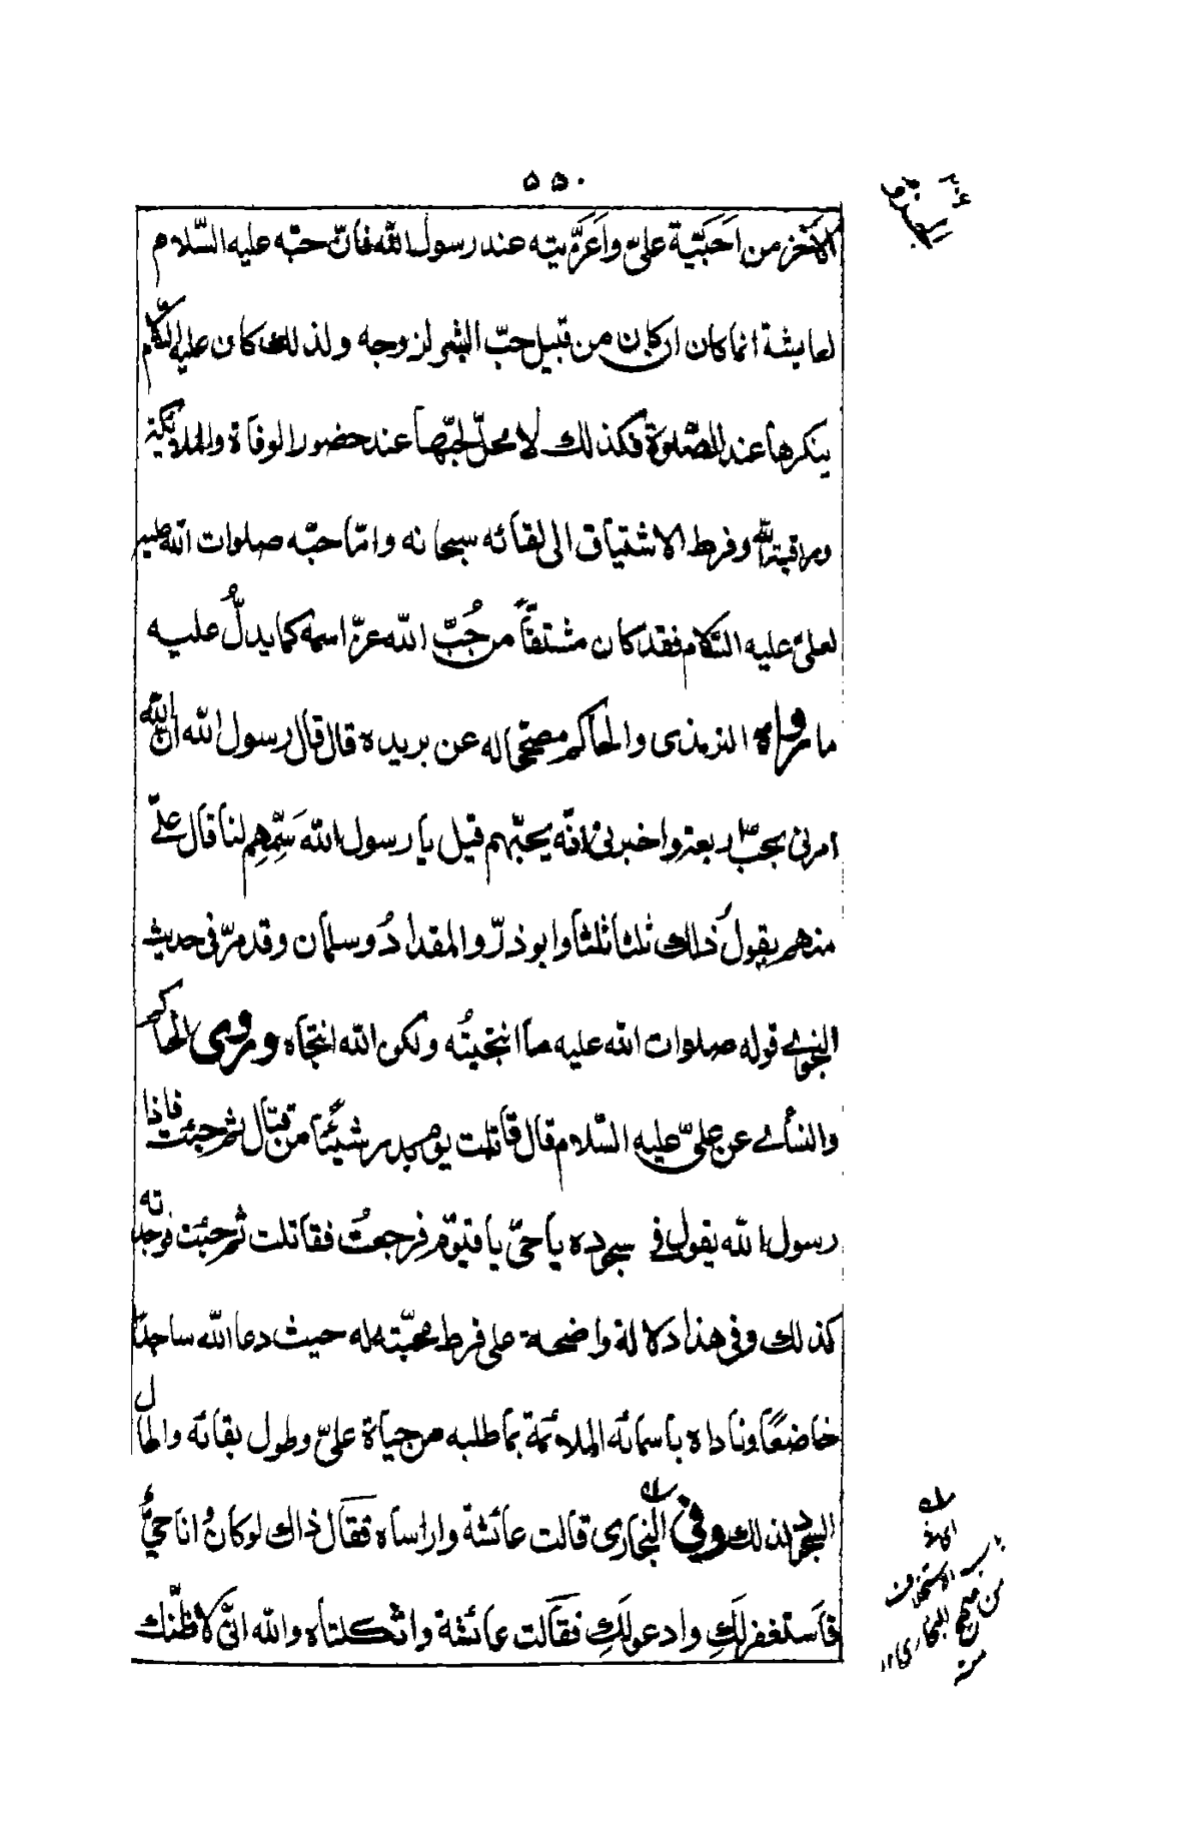 ۵۵۰
الاخر من اَحَبِّيّة علیّ واَعَزِّيته عند رسول اللّه فانّ حبّه عليه السّلام
لعايشة انما كان ان كان من قبيل حبّ البشر لزوجه ولذلك كان عليه السّلام
ينكرها عند الصّلوة فكذلك لا محلّ لحبّها عند حضور الوفاة والملائكة
ومراقبة اللّه وفرط الاشتياق الى لقائه سبحانه وامّا حبّه صلوات اللّه عليه
لعلیّ عليه السّلام فقد كان مشتقاً من حُبّ اللّه عزّ اسمه كما يدلُّ عليه
ما رواه الترمذی والحاكم مصحّحا له عن بريده قال قال رسول اللّه انّ اللّه
امرنی بحبّ اربعة واخبرنی انّه يحبّهم قيل يا رسول اللّه سَمِّهِم لنا قال علیّ
منهم يقولُ ذلك ثلثا ثلثا وابوذرّ والمقدادُ وسلمان وقد مرّ فی حديث
النجوے قوله صلوات اللّه عليه ما انتجيتُه ولكن اللّه انتجاه وروی الحاكم
والنسأے عن علیّ عليه السّلام قال قاتلت يوم بدر شيئًا من قتال ثم جئت فاذا
رسول اللّه يقول فی سجوده يا حیّ يا قيّوم فرجعتُ فقاتلت ثم جئت فوجدته
كذلك وفی هذا دلالة واضحة علی فرط محبّته له حيث دعا اللّه ساجدًا
خاضعًا وناداه باسمائه الملائمة بما طلبه من حياة علیّ وطول بقائه واطال
السجود لذلك وفی البخاری قالت عائشة واراساه فقال ذاك لو كان وُانا حیٌّ
فاستغفر لَكِ وادعو لَكِ فقالت عائشة واثكلتاه واللّه انّی لاظنّك
باب الاستخلاف
من صحيح البخاری ۱۲
منه